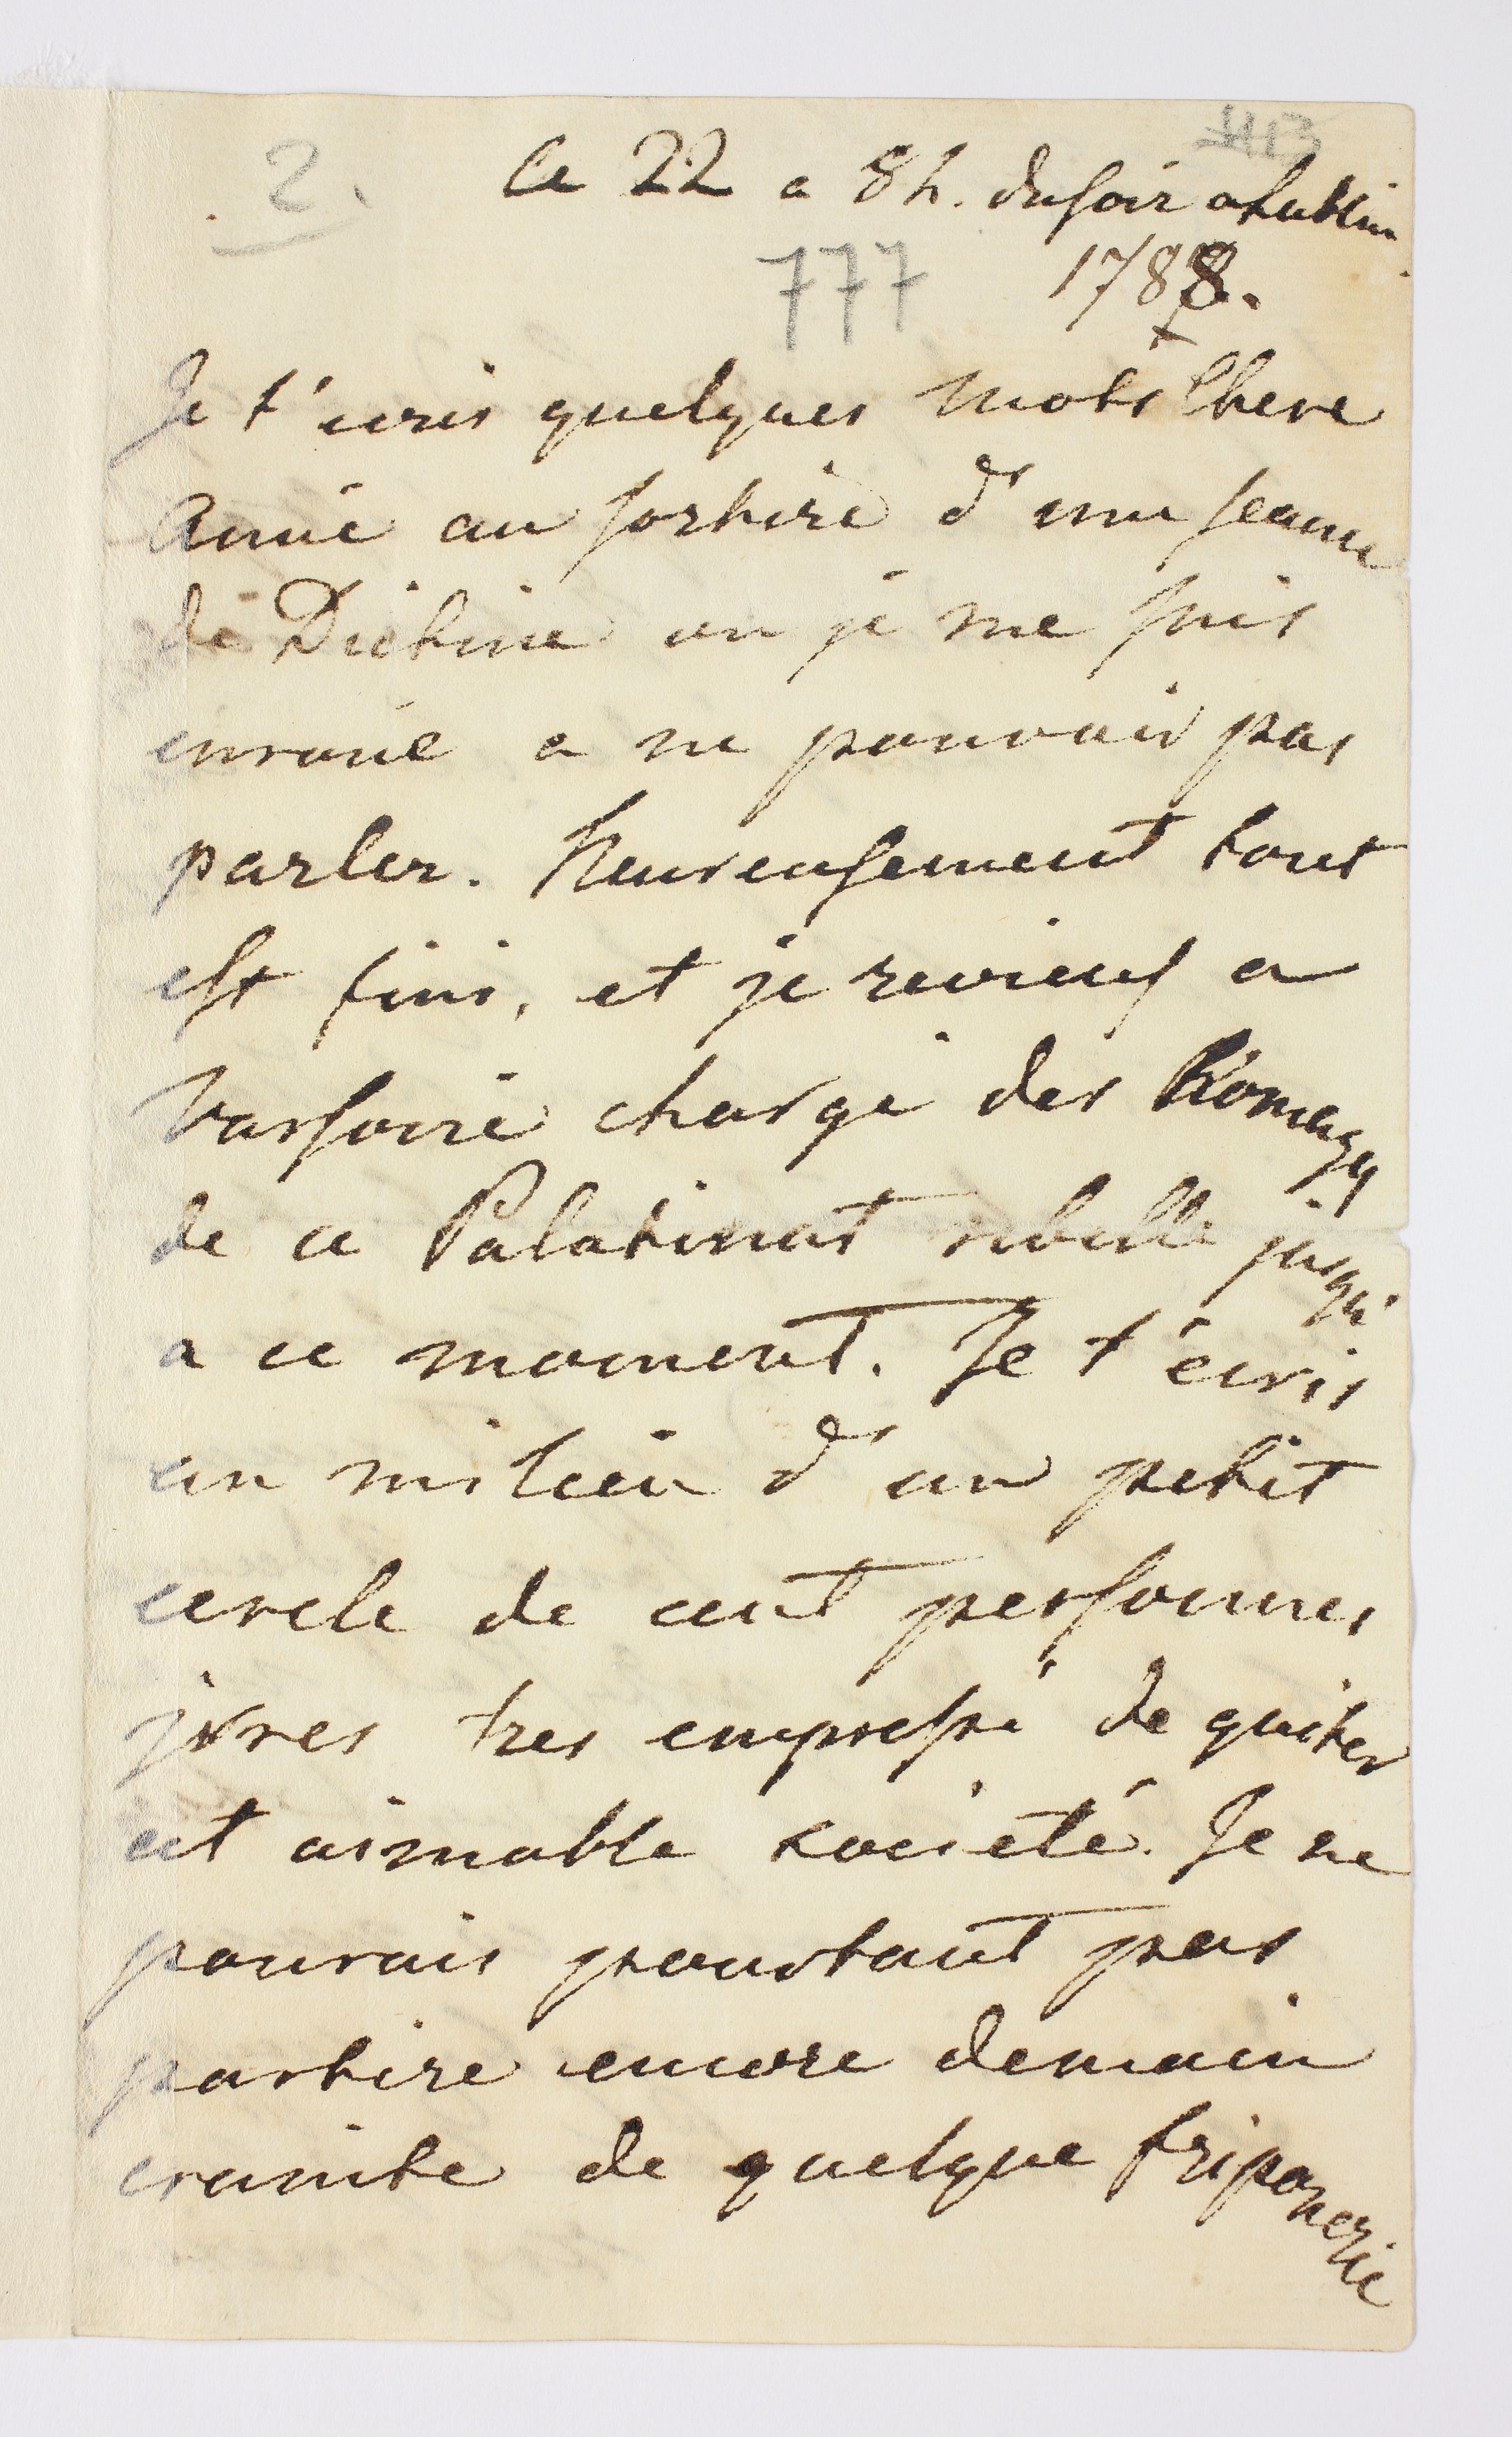 2.
Ce 22 a 8 h. du soir a Lublin
777 1788.
Je t'ecris quelques mots Chere
Amie au sortire d'une seance
de Dietine ou je me suis
enroué a ne pouvoir pas
parler. Heureusement tout
est fini, et je reviens a
Varsovie chargé des homages
de ce Palatinat rebelle jusqu'
a ce moment. Je t'écris
au milieu d'un petit
cercle de cent personnes
jvres tres empressé de quiter
cet aimable societé. Je ne
pourais pourtant pas
partire encore demain
crainte de quelque friponerie